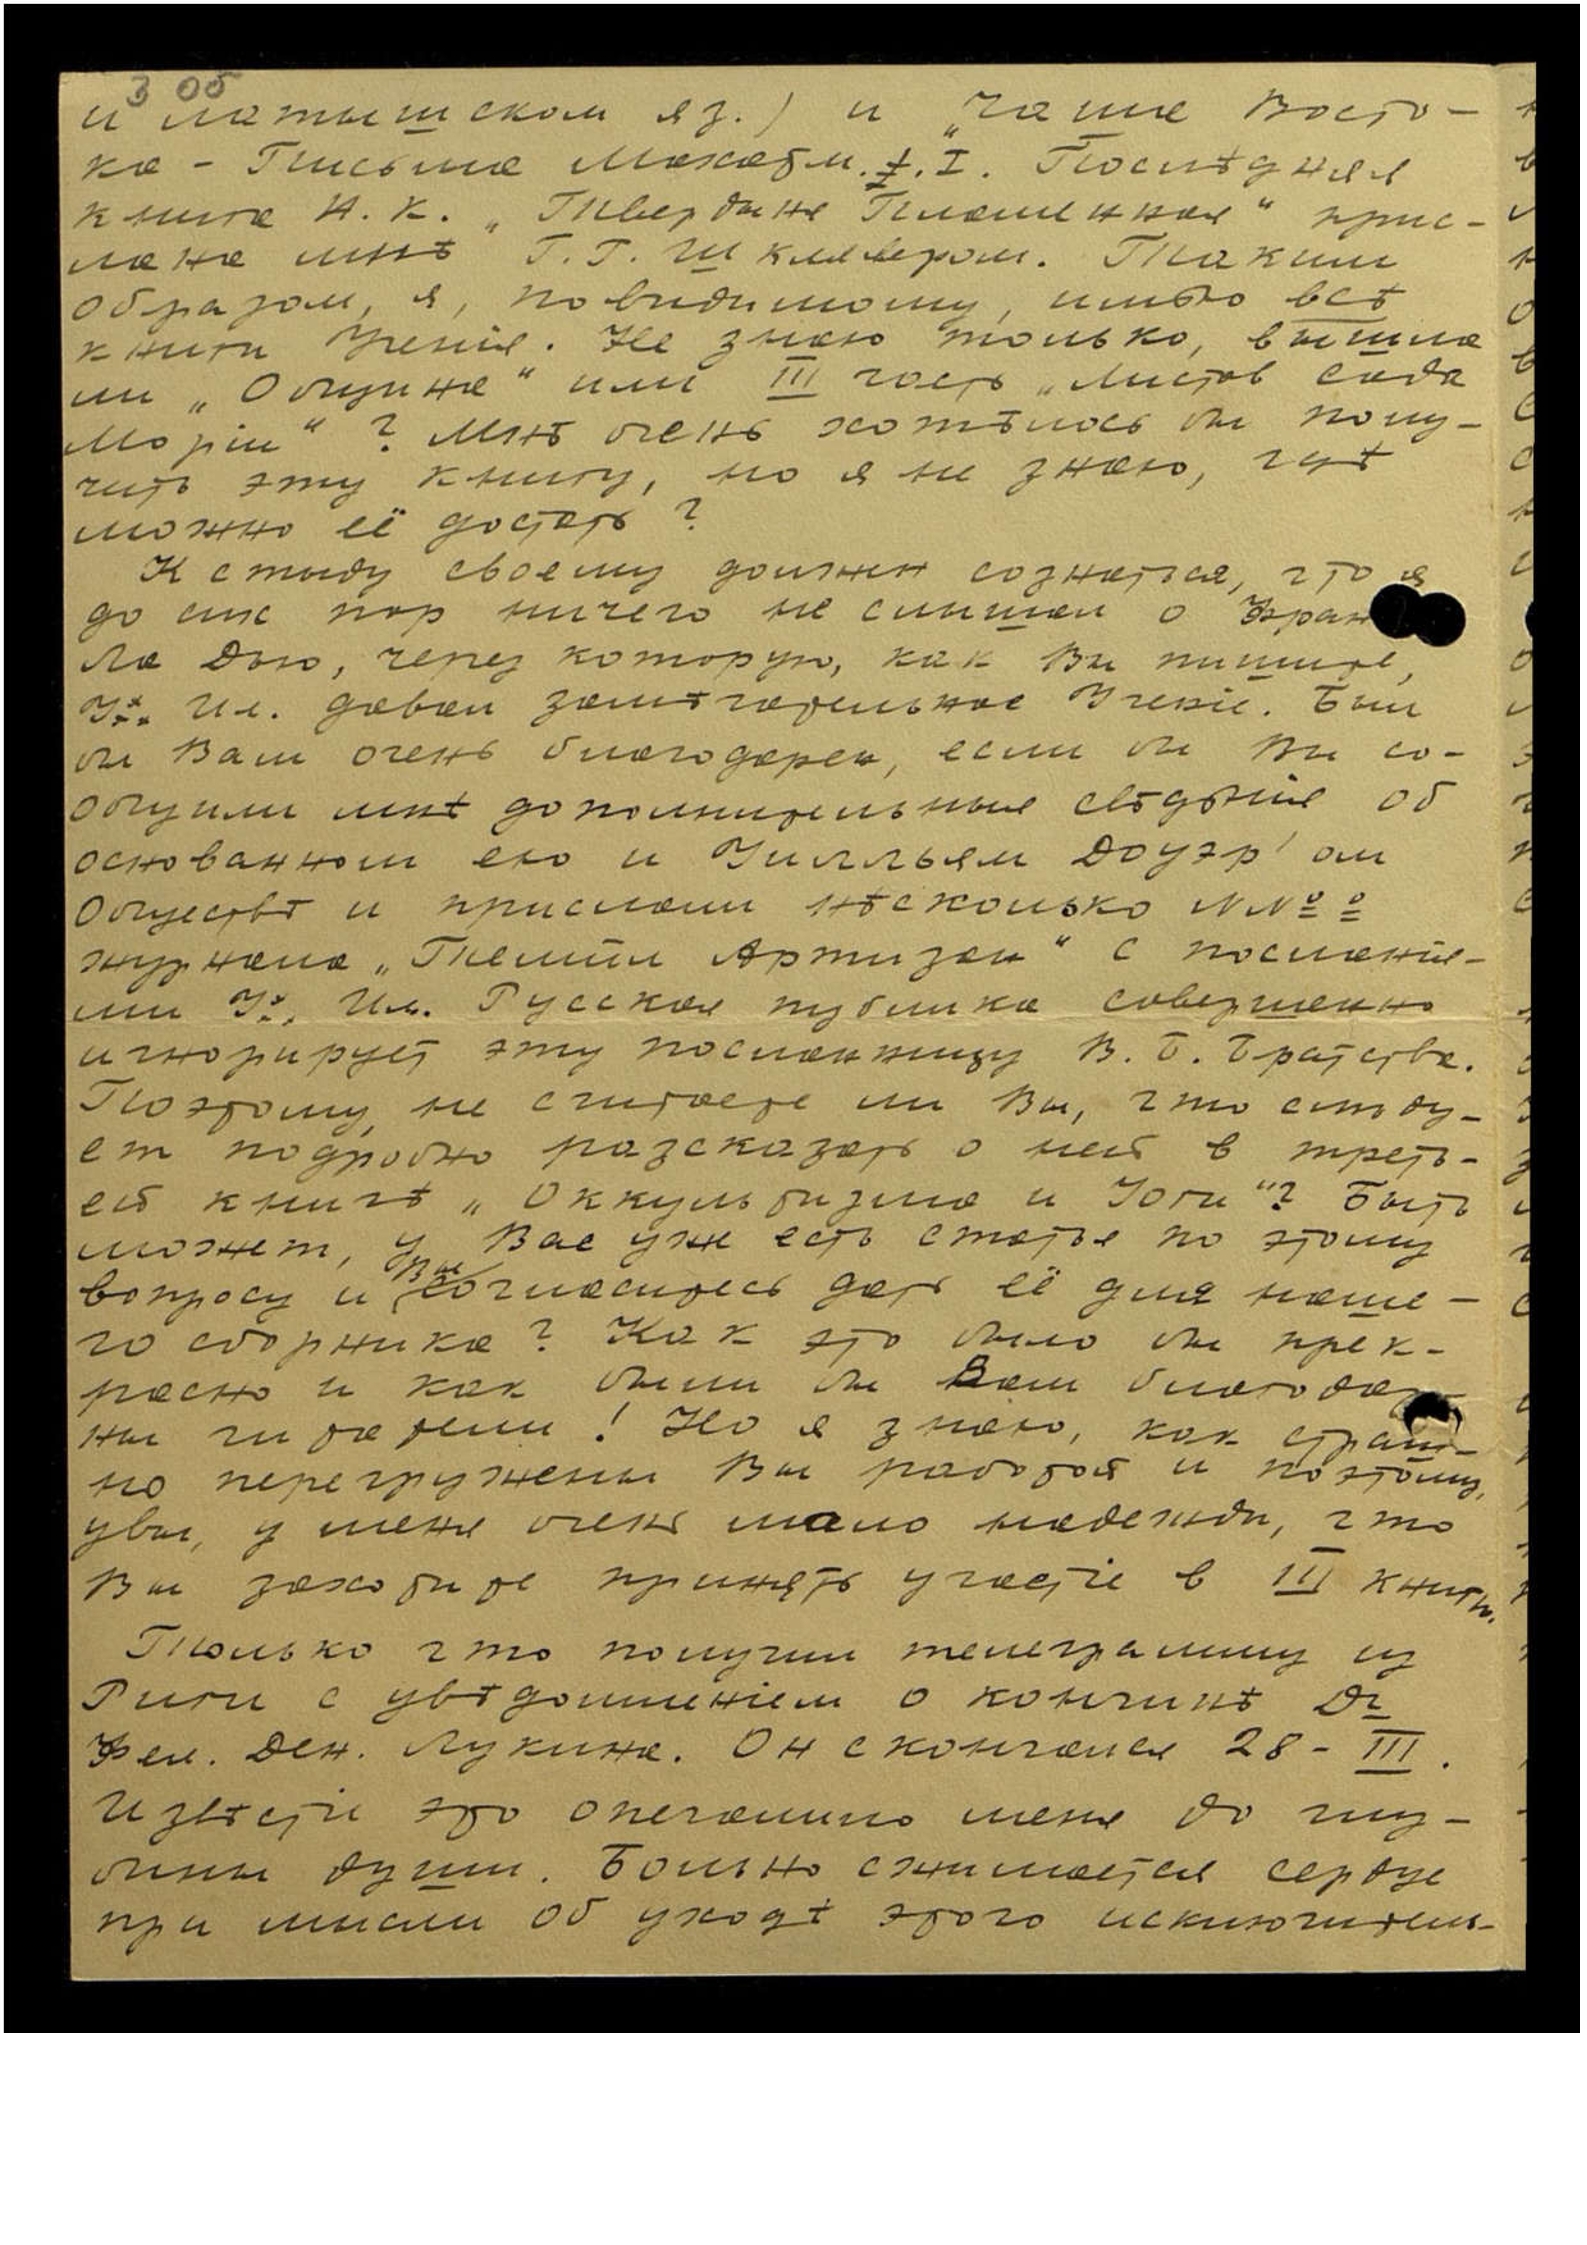 3 об
и латышском яз.) и „Чаша Восто-
ка - Письма Махатм. т. I. Послѣдняя
книга Н. К. „Твердыня Пламенная“ прис-
лана мнѣ Г. Г. Шклявером. Таким
образом, я, повидимому, имѣю всѣ
книги Ученія. Не знаю только, вышла
ли „Община“ или III часть „Листов сада
Моріи“? Мнѣ очень хотѣлось бы полу-
чить эту книгу, но я не знаю, гдѣ
можно её достать?
К стыду своему должен сознаться, что я
до сих пор ничего не слышал о Фран
Ла Дью, через которую, как Вы пишите,
У⁂ Ил. давал замѣчательное Ученіе. Был
бы Вам очень благодарен, если бы Вы со-
общили мнѣ дополнительныя свѣдѣнія об
основанном ею и Уилльям Доуэр'ом
Обществѣ и прислали нѣсколько №№
журнала „Темпл Артизан“ с посланія-
ми У⁂ Ил. Русская публика совершенно
игнорирует эту посланницу Б. Б. Братства.
Поэтому, не считаете ли Вы, что слѣду-
ет подробно разсказать о ней в треть-
ей книгѣ „Оккультизма и Йоги“? Быть
может, у Вас уже есть статья по этому
вопросу и Вы согласитесь дать её для наше-
го сборника? Как это было бы прек-
расно и как были бы Вам благодар
ны читатели! Но я знаю, как страш-
но перегружены Вы работой и поэтому,
увы, у меня очень мало надежды, что
Вы захотите принять участіе в III книгѣ.
Только что получил телеграмму из
Риги с увѣдомленіем о кончинѣ Dr
Фел. Ден. Лукина. Он скончался 28 - III.
Извѣстіе это опечалило меня до глу-
бины души. Больно сжимается сердце
при мысли об уходѣ этого исключитель-